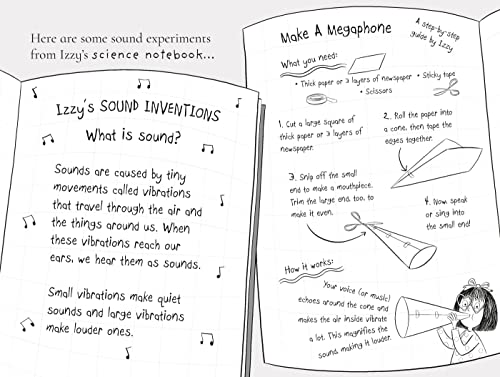 Here are some sound experiments
from Izzy's science notebook...
Izzy's SOUND INVENTIONS
What is sound?
Sounds are caused by tiny
movements called vibrations
that travel through the air and
the things around us. When
these vibrations reach our
ears, we hear them as sounds.
Small vibrations make quiet
sounds and large vibrations
make louder ones.
Make A Megaphone
A step-by-step
guide by Izzy
What you need:
• Thick paper or 3 layers of newspaper • Sticky tape
• Scissors
1. Cut a large square of
thick paper or 3 layers of
newspaper.
2. Roll the paper into
a cone, then tape the
edges together.
3. Snip off the small
end to make a mouthpiece.
Trim the large end, too, to
make it even.
4. Now speak
or sing into
the small end!
How it works:
Your voice (or music)
echoes around the cone and
makes the air inside vibrate
a lot. This magnifies the
sound, making it louder.